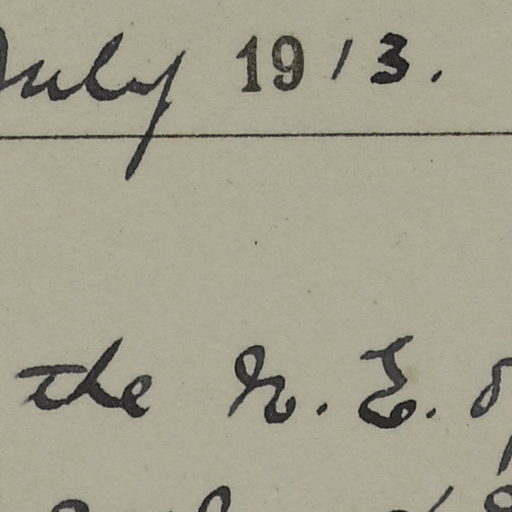 July 1913.
the N. E. of